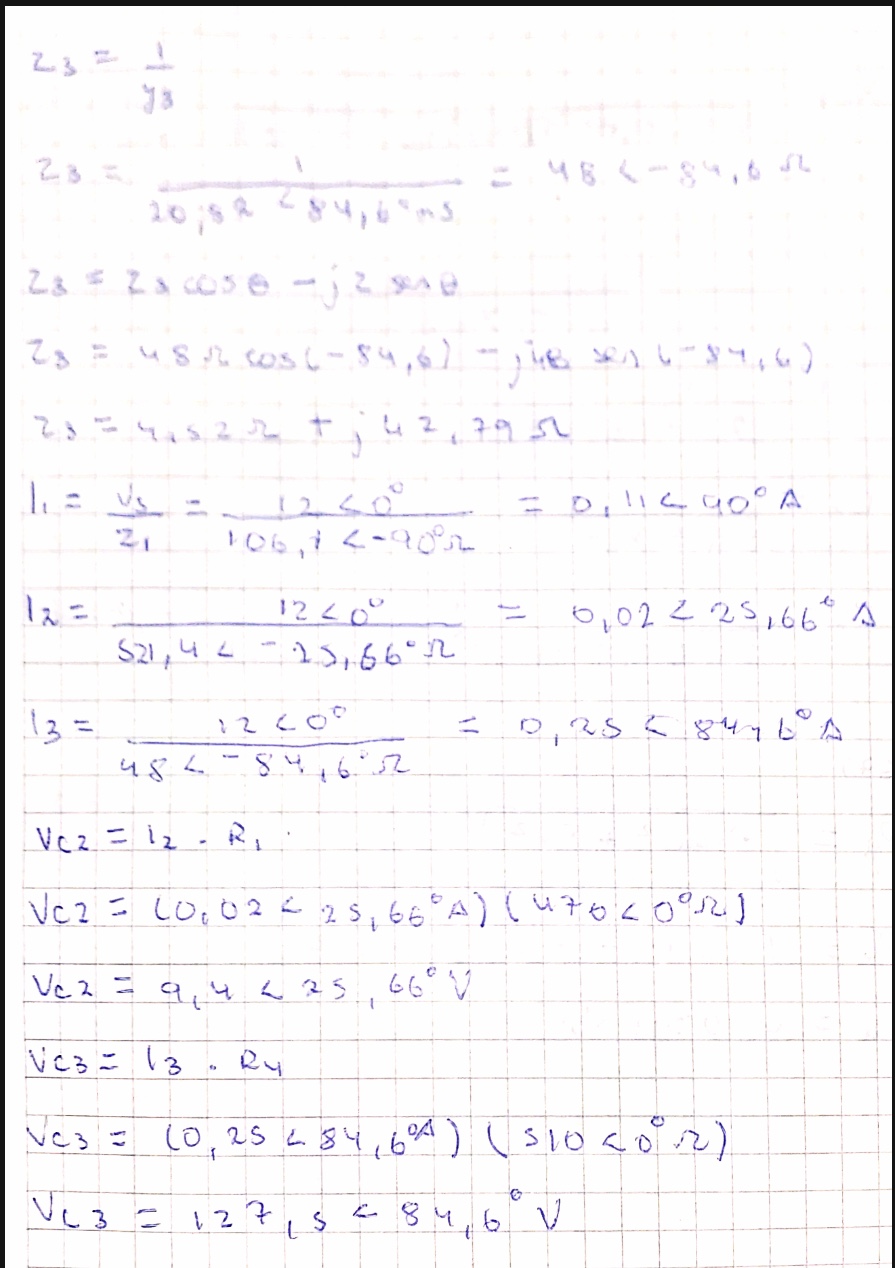 Z3 = 1 / Y3
Z3 = 1 / 20,82 < 84,6° ms = 48 < -84,6 Ω
Z3 = Z3 cos θ - j Z sen θ
Z3 = 48 Ω cos(-84,6) - j48 sen (-84,6)
Z3 = 4,52 Ω + j 42,79 Ω
I1 = Vs / Z1 = 12 < 0° / 106,1 < -90° Ω = 0,11 < 90° A
I2 = 12 < 0° / 521,4 < -25,66° Ω = 0,02 < 25,66° A
I3 = 12 < 0° / 48 < -84,6° Ω = 0,25 < 84,6° A
VC2 = I2 . R1
VC2 = (0,02 < 25,66° A) (470 < 0° Ω)
VC2 = 9,4 < 25,66° V
VC3 = I3 . R4
VC3 = (0,25 < 84,6° A) (510 < 0° Ω)
VC3 = 127,5 < 84,6° V